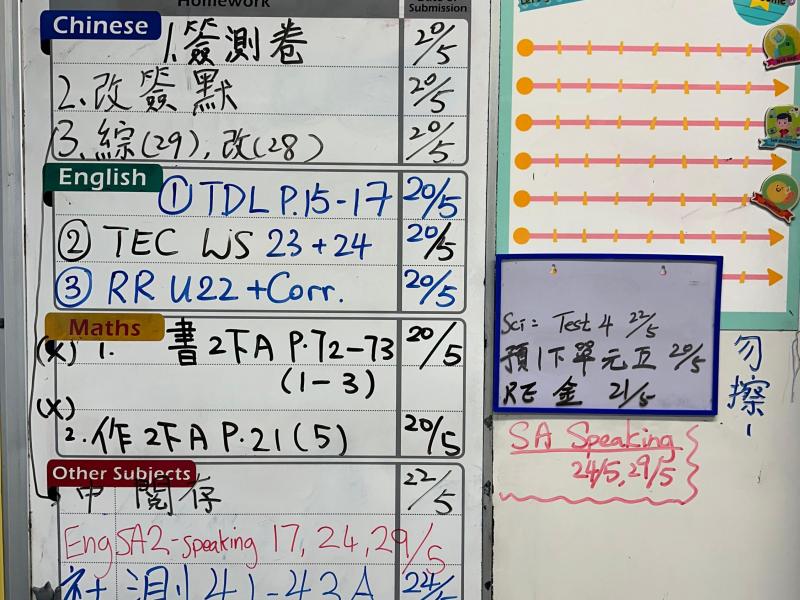 Homework
Submission
Chinese
1. 簽測卷 20/5
2. 改簽默 20/5
3. 綜(29), 改(28) 20/5
English
① TDL P.15-17 20/5
② TEC WS 23+24 20/5
③ RR U22 +Corr. 20/5
Maths
(X) 1. 書 2下A P.72-73 20/5
(1-3)
(X)
2. 作 2下A P.21 (5) 20/5
Other Subjects
中 閱存 22/5
Eng SA2-speaking 17, 24, 29/5
社 測 41-43A 24/5
Sci: Test 4 22/5
預1下單元五 20/5
RE 金 21/5
勿擦
SA Speaking
24/5, 29/5